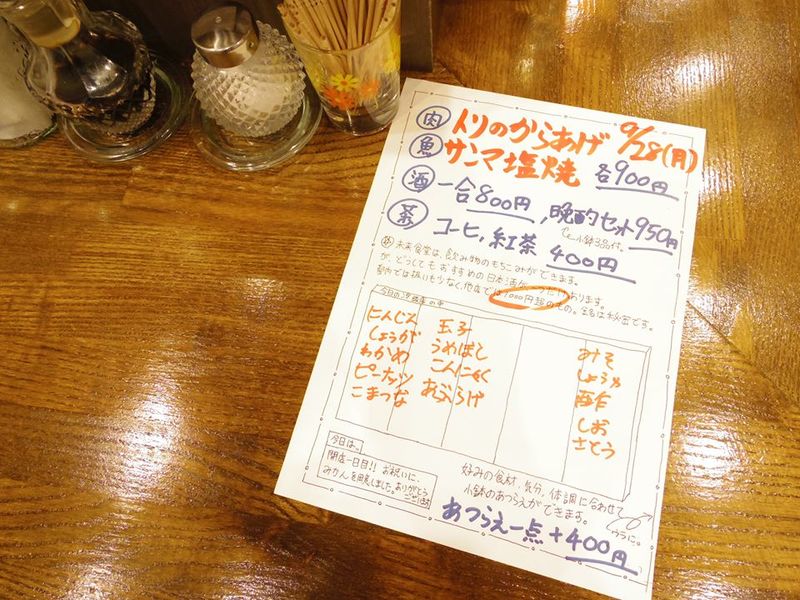 肉 トリのからあげ 9/28(月)
魚 サンマ塩焼 各900円
酒 一合800円, 晩酌セット950円
小鉢3品付。
茶 コーヒ, 紅茶 400円
未来食堂は、飲み物のもちこみができます。
が、どうしてもおすすめの日本酒が一つだけあります。
都内では扱いも少なく、他店では1000円超のもの。銘は秘密です。
今日の冷蔵庫の中
にんじん
しょうが
わかめ
ピーナッツ
こまつな
玉子
うめぼし
こんにゃく
あぶらげ
みそ
しょうゆ
酢
しお
さとう
今日は、
開店一日目!! お祝いに、
みかんを用意しました。ありがとう
ございます
好みの食材、気分、体調に合わせて
小鉢のあつらえができます。
ウラに。
あつらえ一点+400円